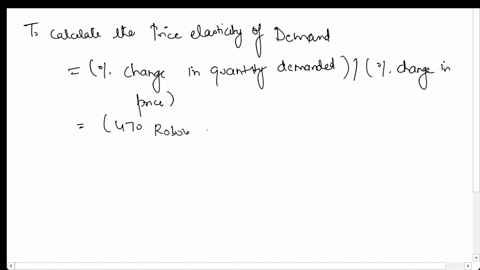 To calculate the Price elasticity of Demand
= (% change in quantity demanded) / (% change in
price)
= (470 Robo